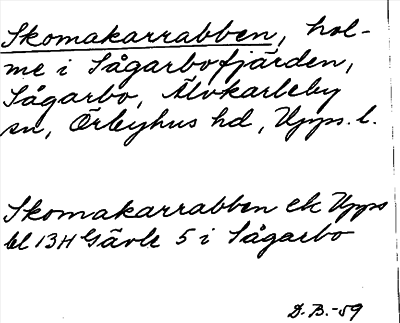 Skomakarrabben, hol-
me i Sågarbofjärden,
Sågarbo, Älvkarleby
sn, Örbyhus hd, Upps. l.
Skomakarrabben ek Upps
bl 13H Gävle 5 i Sågarbo
D.B.-59